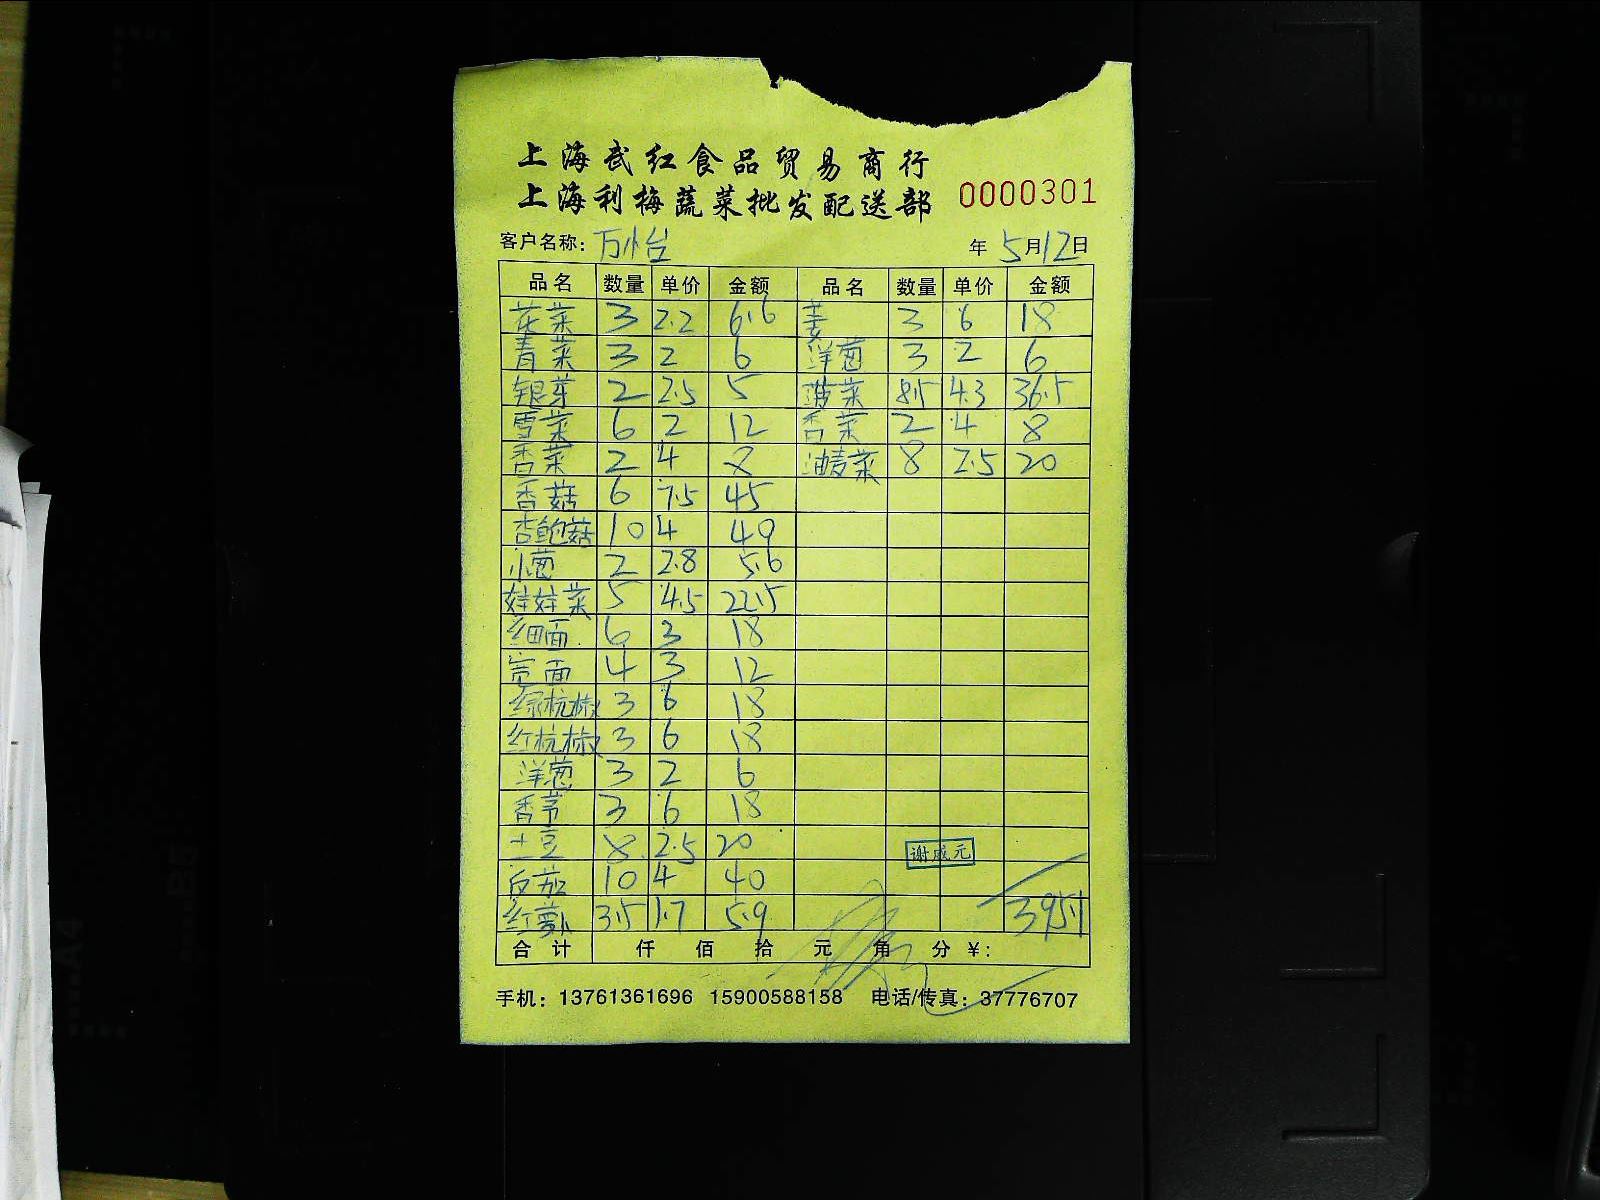 上海武红食品贸易商行
上海利梅蔬菜批发配送部 0000301
客户名称: 万怡 年 5月12日
品名 数量 单价 金额 品名 数量 单价 金额
花菜 3 2.2 6.6 姜 3 6 18
青菜 3 2 6 洋葱 3 2 6
银芽 2 2.5 5 菠菜 8.5 4.3 36.5
雪菜 6 2 12 香菜 2 4 8
香菜 2 4 8 油麦菜 8 2.5 20
香菇 6 7.5 45
杏鲍菇 10 4 40
小葱 2 2.8 5.6
娃娃菜 5 4.5 22.5
细面 6 3 18
宽面 4 3 12
绿杭椒 3 6 18
红杭椒 3 6 18
洋葱 3 2 6
香芹 3 6 18
土豆 8 2.5 20 谢成元
白茄 10 4 40
红萝卜 3.5 1.7 5.9 395.1
合计 仟 佰 拾 元 角 分 ¥:
手机: 13761361696 15900588158 电话/传真: 37776707